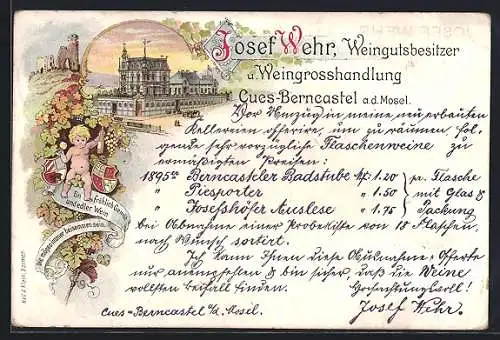 Josef Wehr, Weingutsbesitzer
u. Weingrosshandlung
Cues-Berncastel a.d. Mosel.
Vor Umzug in meine neu erbauten
Kellereien offerire, um zu räumen, fol-
gende sehr vorzügliche Flaschenweine zu
ermäßigten Preisen:
1895er Berncasteler Badstube M. 1.20 pr. Flasche
" Piesporter " 1.50 mit Glas &
" Josefshöfer Auslese " 1.75 Packung
bei Abnahme einer Probekiste von 18 Flaschen,
nach Wunsch sortirt.
Ich kann Ihnen diese Ausnahme-Offerte
nur anempfehlen & bin sicher, daß die Weine
vollsten Beifall finden.
Hochachtungsvoll!
Cues-Berncastel a/d. Mosel. Josef Wehr.
Ein fröhlich Gemüt
und edler Wein
Mög immer beisammen sein.